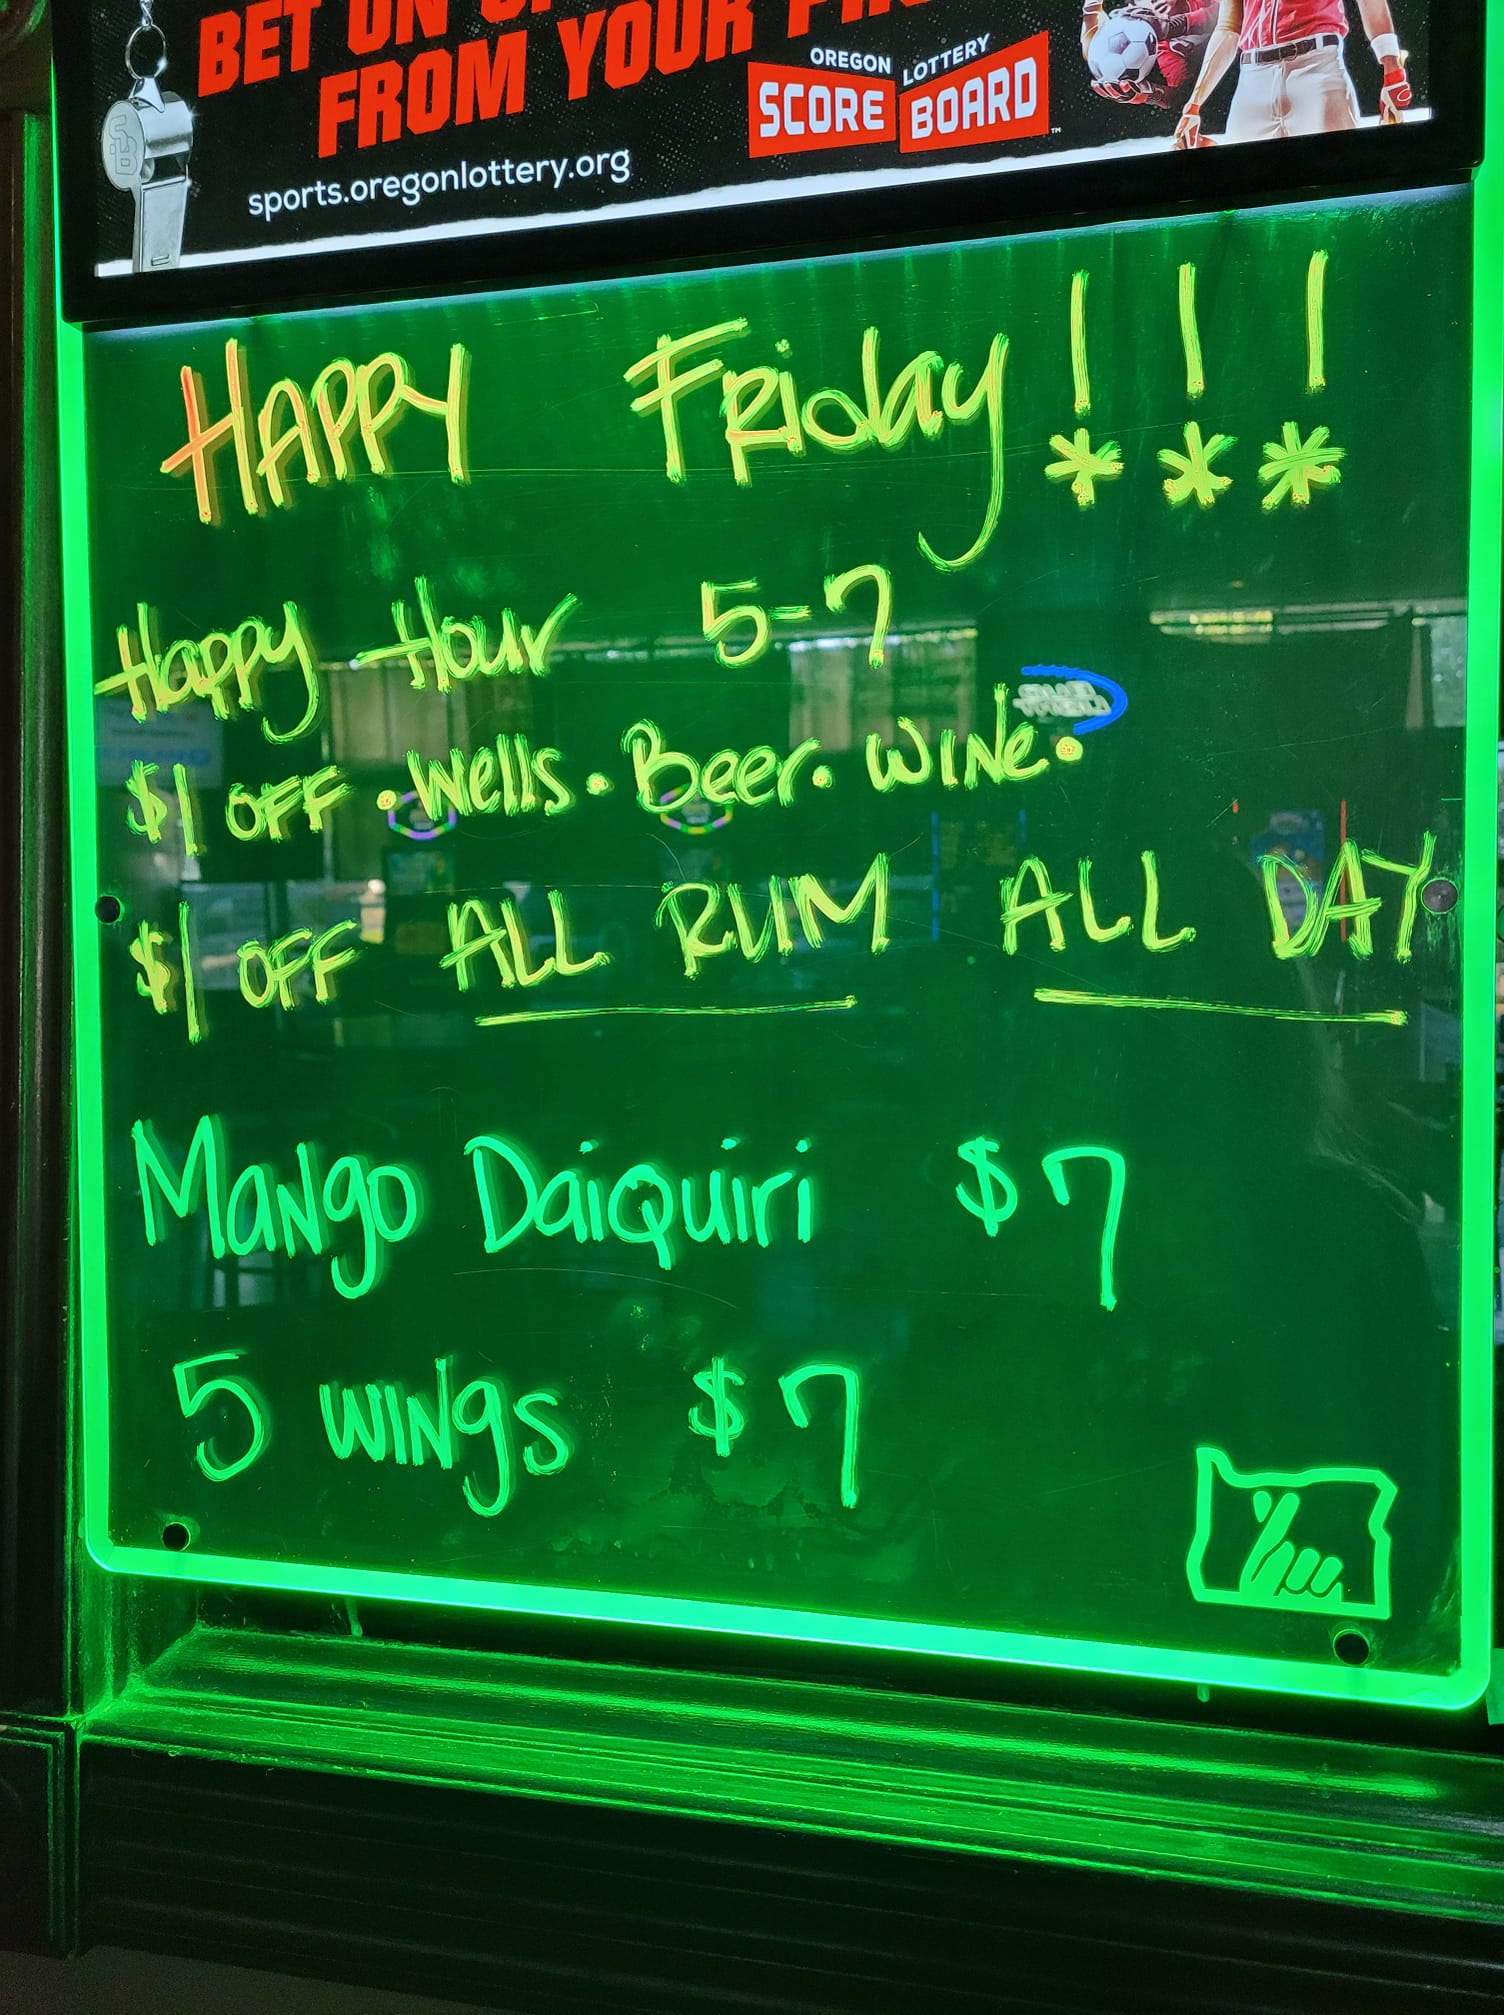 BET ON
FROM YOUR
OREGON LOTTERY
SCORE BOARD™
sports.oregonlottery.org
HAPPY FRiday!!!
Happy Hour 5-7
$1 OFF • Wells • Beer • WINe •
$1 OFF ALL RUM ALL DAY
MaNgo DaiQuiri $7
5 wiNgs $7